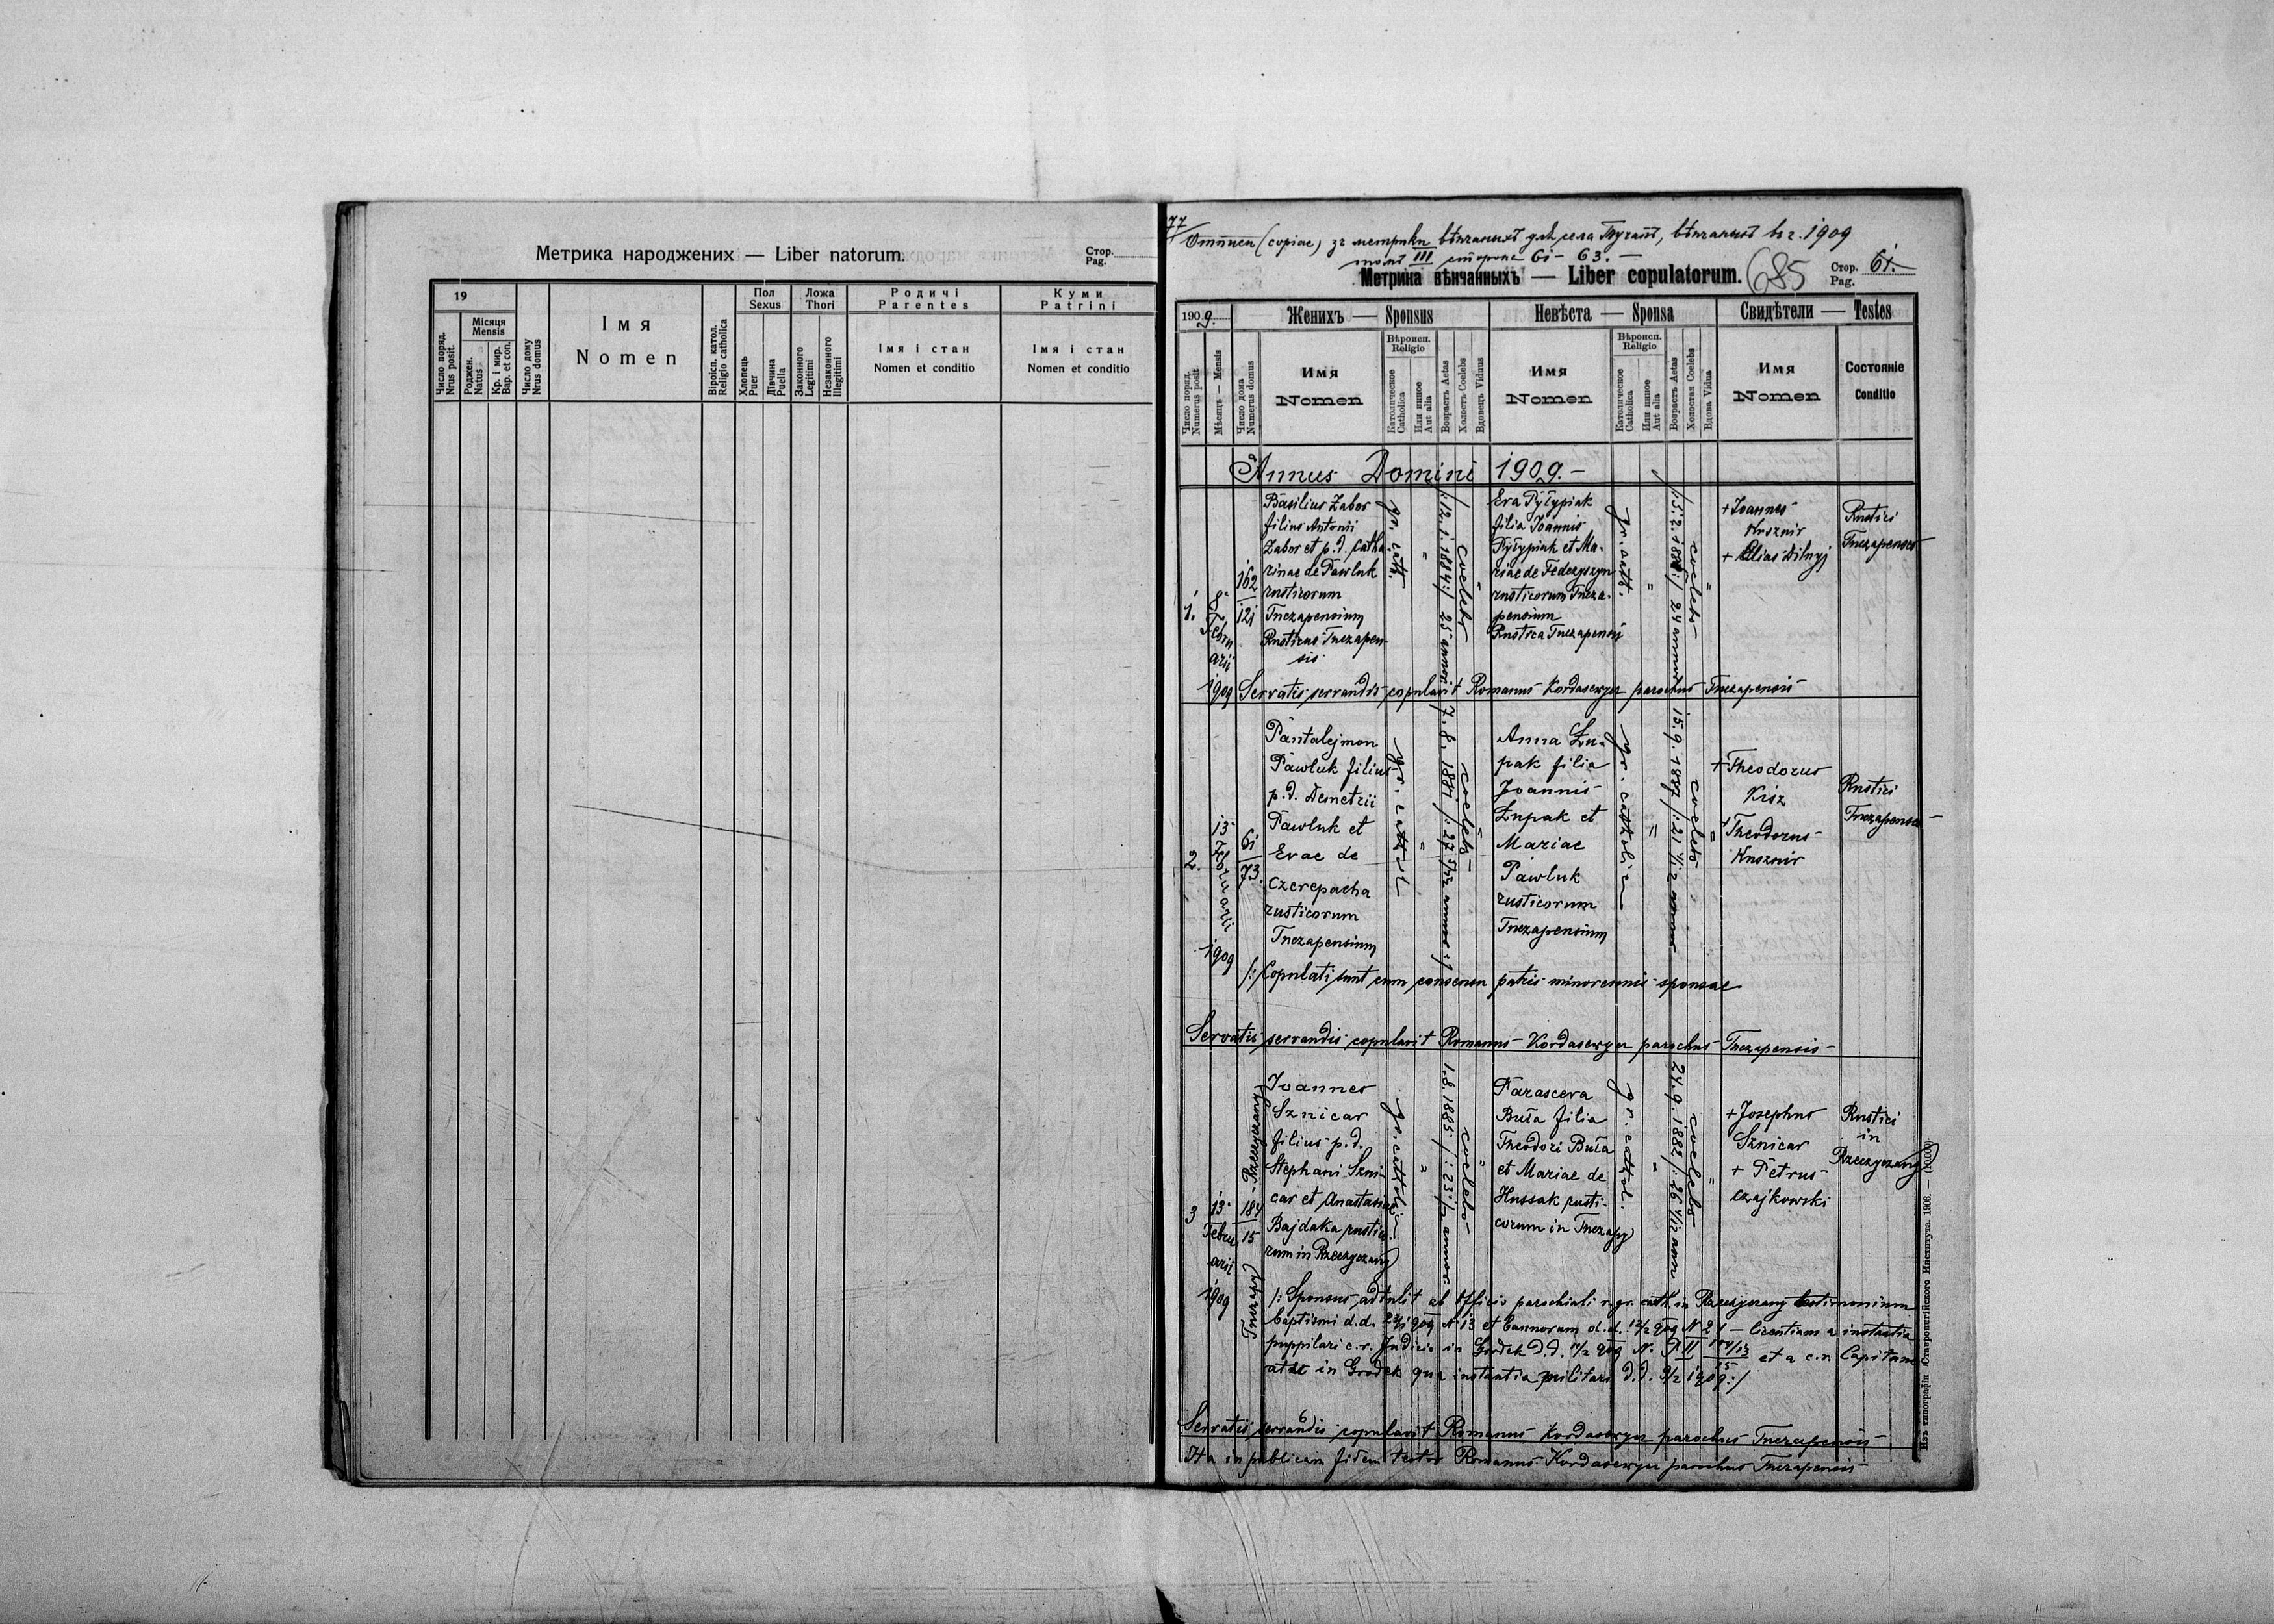 Метрика народжених — Liber natorum.
Стор.
Pag.
19
Число поряд.
Nrus posit.
Місяця
Mensis
Роджен.
Natus
Кр. і мир.
Bap. et con.
Число дому
Nrus domus
Імя
Nomen
Віроісп. катол.
Religio catholica
Пол
Sexus
Хлопець
Puer
Дівчина
Puella
Ложа
Thori
Законного
Legitimi
Незаконного
Illegitimi
Родичі
Parentes
Імя і стан
Nomen et conditio
Куми
Patrini
Імя і стан
Nomen et conditio
77
(copiae) зъ метрики вѣнчаныхъ для села вѣнчаныхъ 1909
III сторона 61 - 63. -
Метрика вѣнчанныхъ — Liber copulatorum.
685
Стор.
Pag.
61.
1909.
Число поряд.
Numerus posit.
Мѣсяцъ — Mensis
Число дома
Numerus domus
Женихъ — Sponsus
Имя
Nomen
Вѣроисп.
Religio
Католическое
Catholica
Или иное
Aut alia
Возрастъ Aetas
Холостъ Coelebs
Вдовецъ Viduus
Невѣста — Sponsa
Имя
Nomen
Вѣроисп.
Religio
Католическое
Catholica
Или иное
Aut alia
Возрастъ Aetas
Холостая Coelebs
Вдова Vidua
Свидѣтели — Testes
Имя
Nomen
Состояніе
Conditio
Annus Domini 1909.-
1.
8
Febru
arii
1909
162
121
Basilius Zabor
filius Antonii
Zabor et p.d. Catha
rinae de Pawluk
rusticorum
Tuczapensium
Rusticus Tuczapen
sis
gr. cath.
"
/:12.1.1884:/ 25 annor
coelebs
"
Eva Pyłypiak
filia Joannis
Pyłypiak et Ma-
riae de Fedczyszyn
rusticorum Tucza-
pensium
Rustica Tuczapensis
gr. cath.
"
24 annor
coelebs
"
+ Joannes
Kusznir
+ Elias Dilnyj
Rustici
Tuczapenses
Servatis servandis copulavit Romanus Kordasewycz parochus Tuczapensis
2.
13
Februarii
1909
61
73.
Pantalejmon
Pawluk filius
p.d. Demetrii
Pawluk et
Evae de
Czerepacha
rusticorum
Tuczapensium
gr. cathol
"
7. 8. 1881 /: 27 5/12 annor :/
coelebs
"
Anna Łu-
pak filia
Joannis
Łupak et
Mariae
Pawluk
rusticorum
Tuczapensium
gr. catholic
"
15. 9. 1887 /: 21
coelebs
"
+ Theodorus
Kisz
+ Theodorus
Kusznir
Rustici
Tuczapenses
/: Copulati sunt cum consensu patris minorennis sponsae
Servatis servandis copulavit Romanus Kordasewycz parochus Tuczapensis
3
13
Febru
arii
1909
Rzeczyczany
184
15
Tuczapy
Joannes
Sznicar
filius p.d.
Stephani Szni
car et Anastasiae
Bajdaka rustico
rum in Rzeczyczany
gr. catholic
"
1.8.1885 /: 23 1/2 annor.
coelebs
"
Parasceva
Buła filia
Theodori Buła
et Mariae de
Hussak rusti-
corum in Tuczapy
gr. cathol.
"
24. 9. 1882 /: 26
coelebs
"
+ Josephus
Sznicar
+ Petrus
Czajkowski
Rustici
in
Rzeczyczany
/: Sponsus adtulit ab Officio parochiali r.gr. cath. in Rzeczyczany testimonium
baptismi d.d. 909 N 13 et bannorum d.d. 12/2 909 N 21 - licentiam a instantia
puppilari c.r. Judicio in Grodek d.d. 909 N. P. II et a c.r. Capitane
atu in Grodek qua instantia militari d.d. 9/2 1909:/
Servatis servandis copulavit Romanus Kordasewycz parochus Tuczapensis
Ita in publicam fidem testor Romanus Kordasewycz parochus Tuczapensis
Изъ типографіи Ставропигійского Института. 1908. —